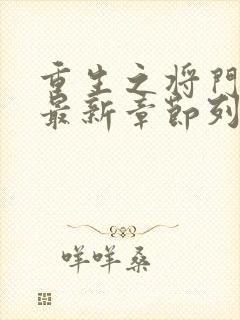 重生之将门
最新章节列
咩咩桑